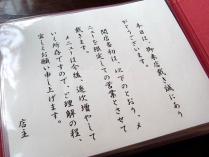 本日は、御来店戴き誠にあり
がとうございます。
開店当初は、以下のとおり、メ
ニューを限定しての営業とさせて
戴きます。
メニューは今後、逐次増やして
いく所存ですので、ご理解の程、
宜しくお願い申し上げます。
店主